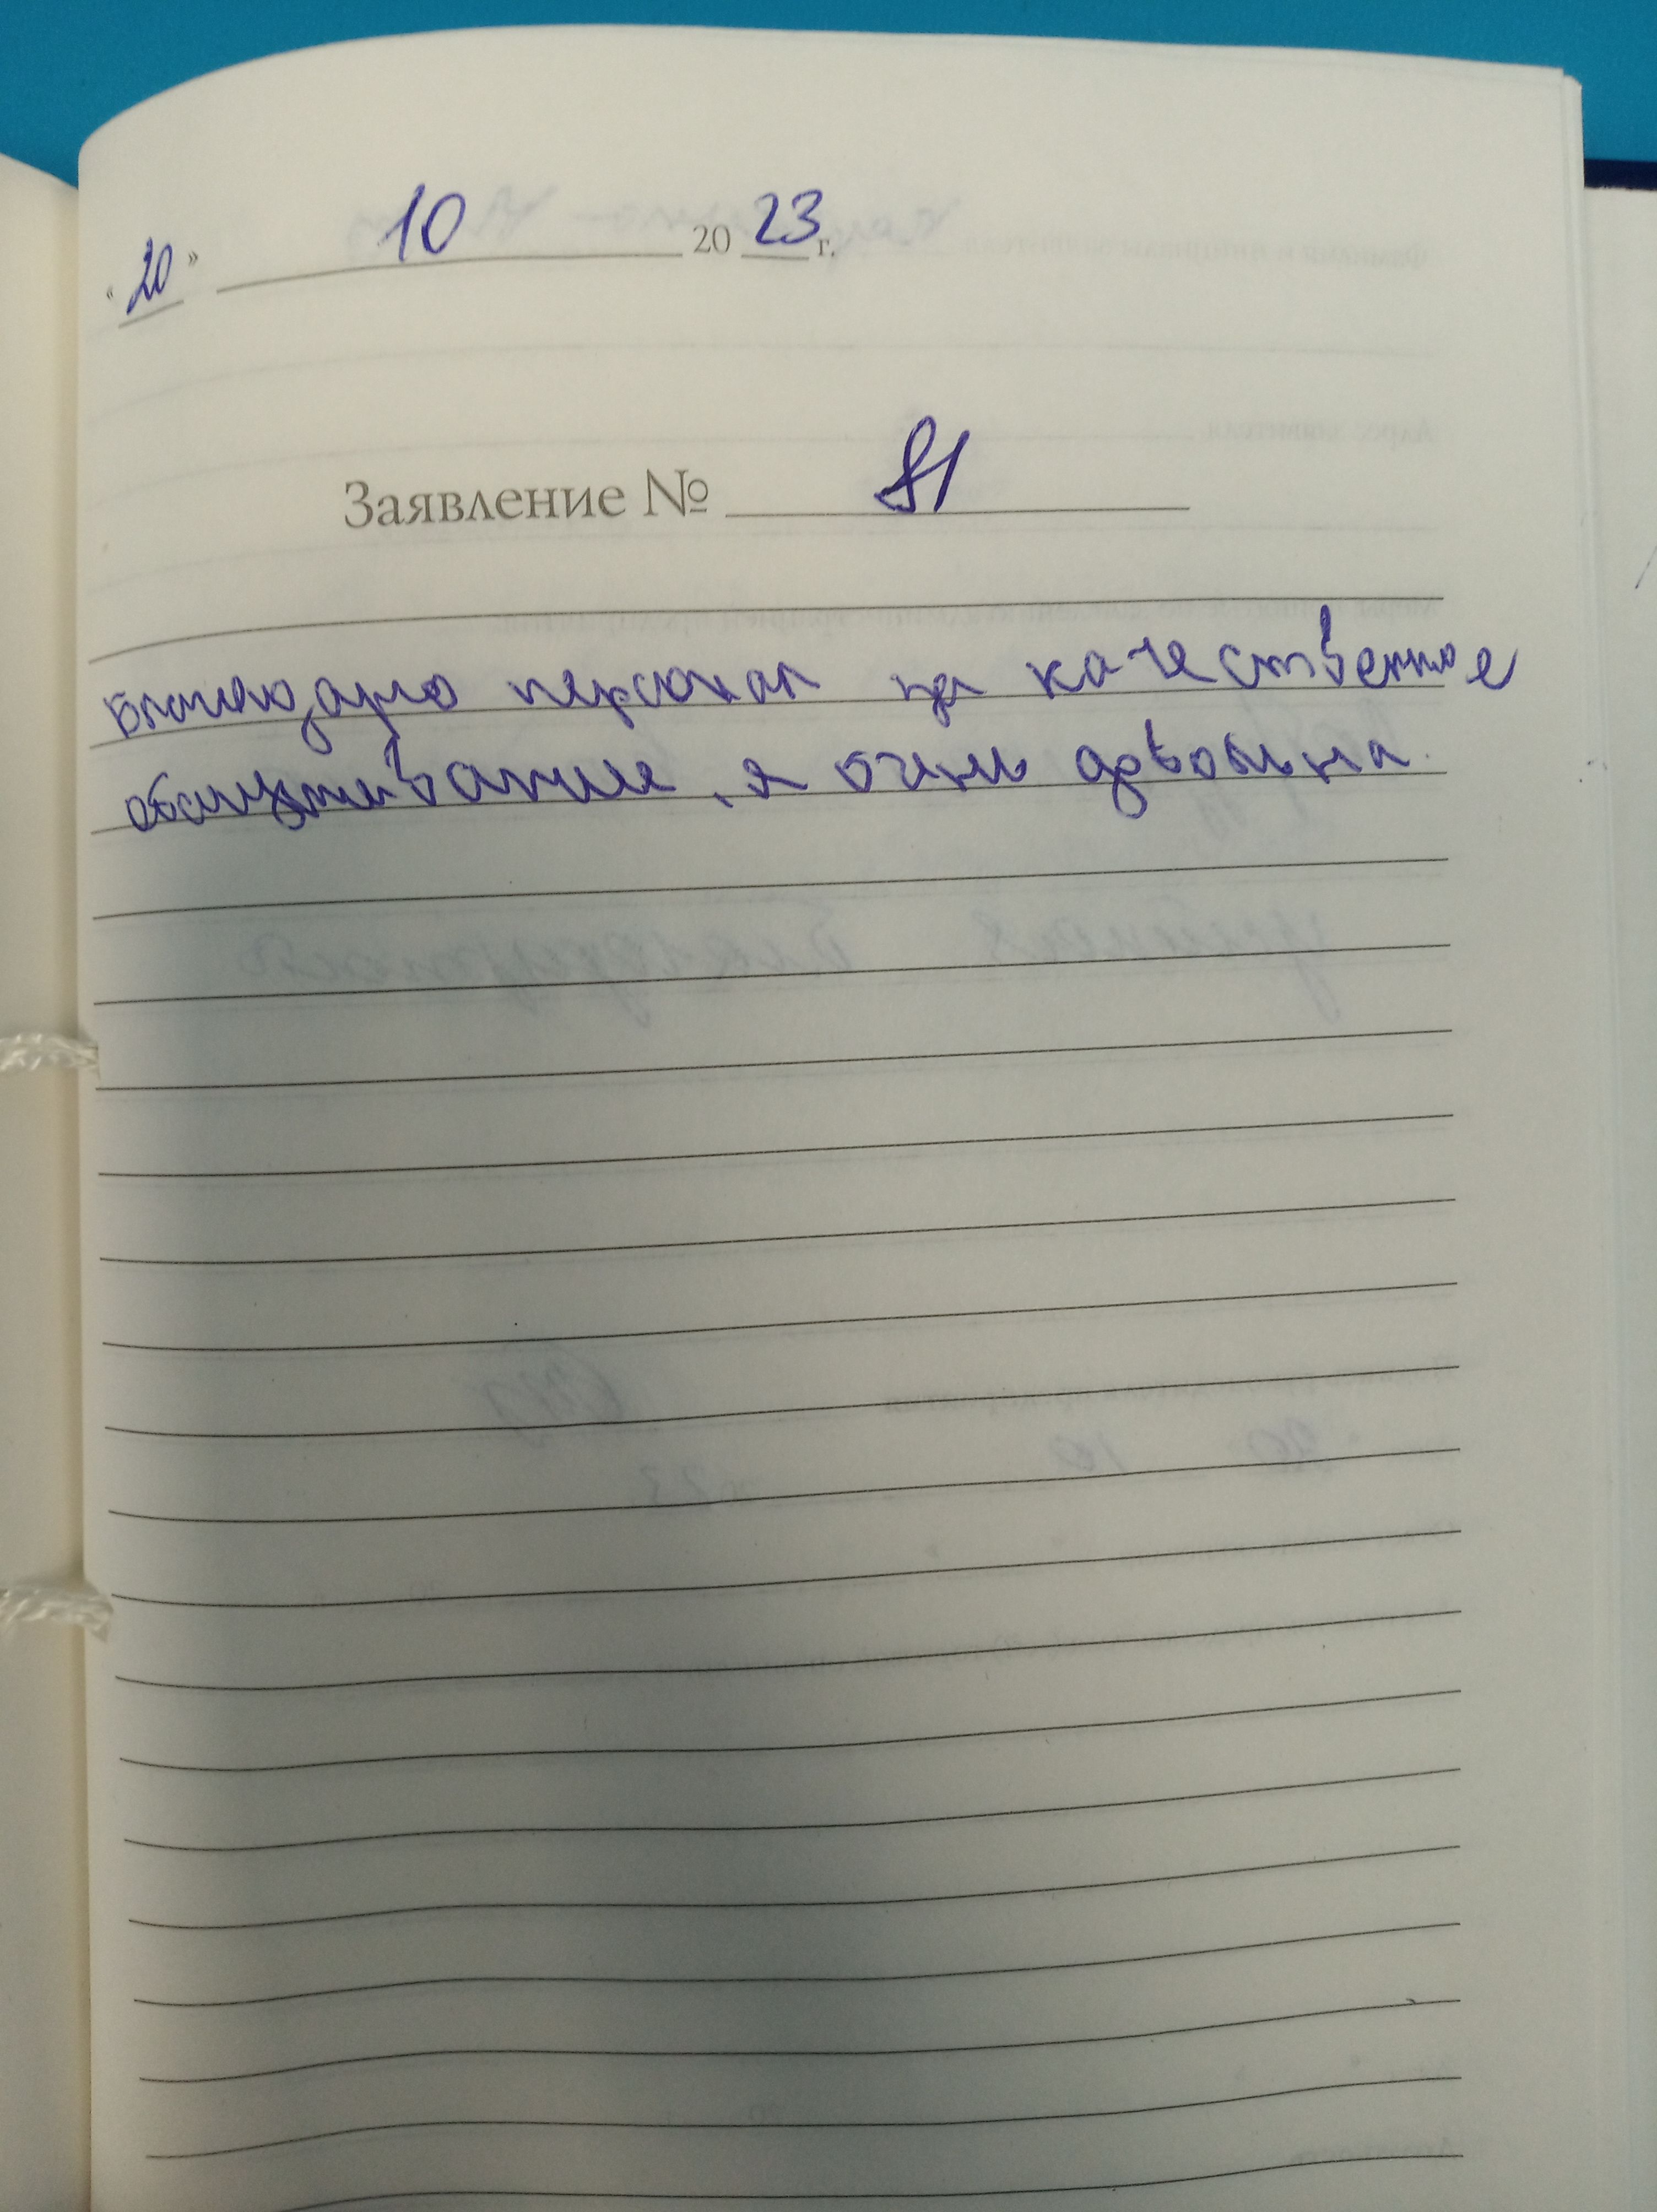 « 20 » 10 20 23 г.
Заявление № 81
благодарю персонал за качественное
обслуживание, я очень довольна